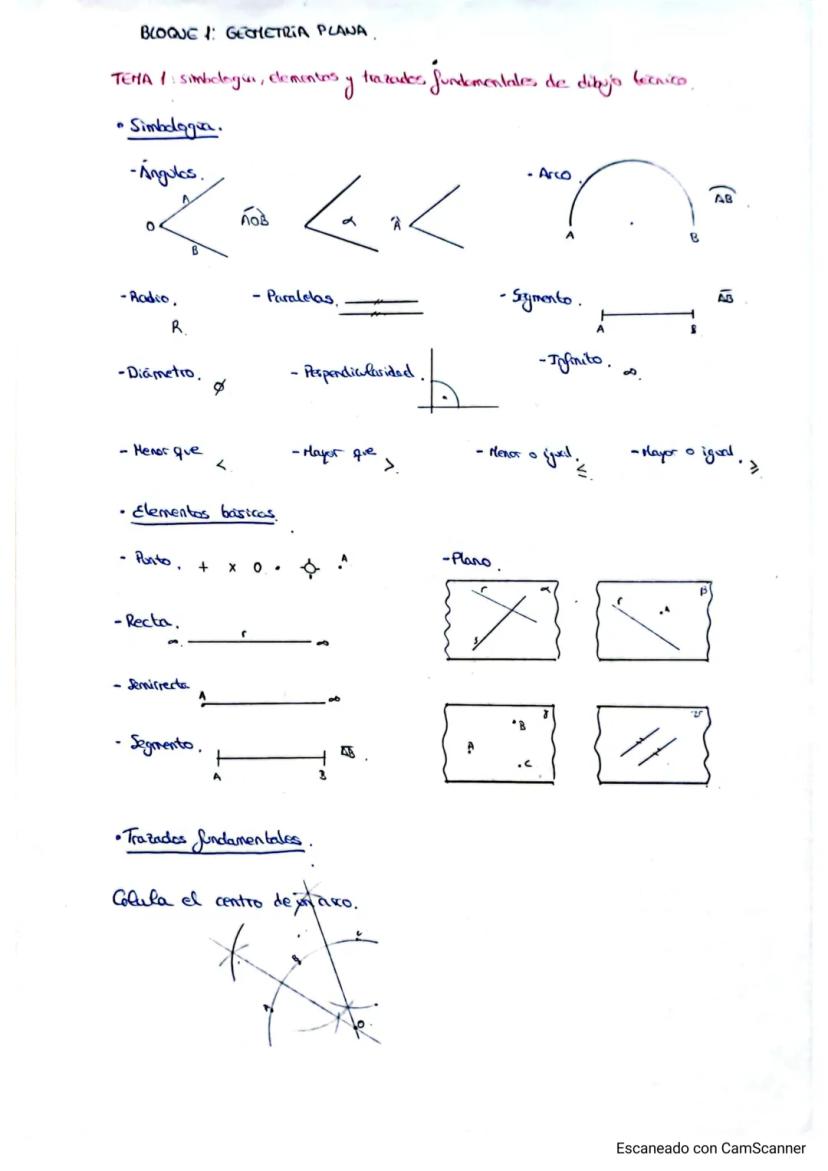 BLOQUE 1: GEOMETRÍA PLANA.
TEMA 1: simbología, elementos y trazados fundamentales de dibujo técnico.
• Simbología.
- Ángulos.
- Arco
A
O
B
AOB
α
A
A
B
AB
- Radio.
R.
- Paralelas.
- Segmento.
A
B
AB
- Diámetro.
Ø
- Perpendicularidad.
- Infinito.
∞.
- Menor que <
- Mayor que >.
- Menor o igual. ≤
- Mayor o igual. ≥
• Elementos básicos.
- Punto. + x o • A
- Plano.
r
s
α
r
A
β
- Recta.
∞ r ∞
- Semirrecta
A ∞
- Segmento.
A
B
AB.
A
B
C
γ
• Trazados fundamentales.
Calcula el centro de un arco.
A
B
C
O
Escaneado con CamScanner